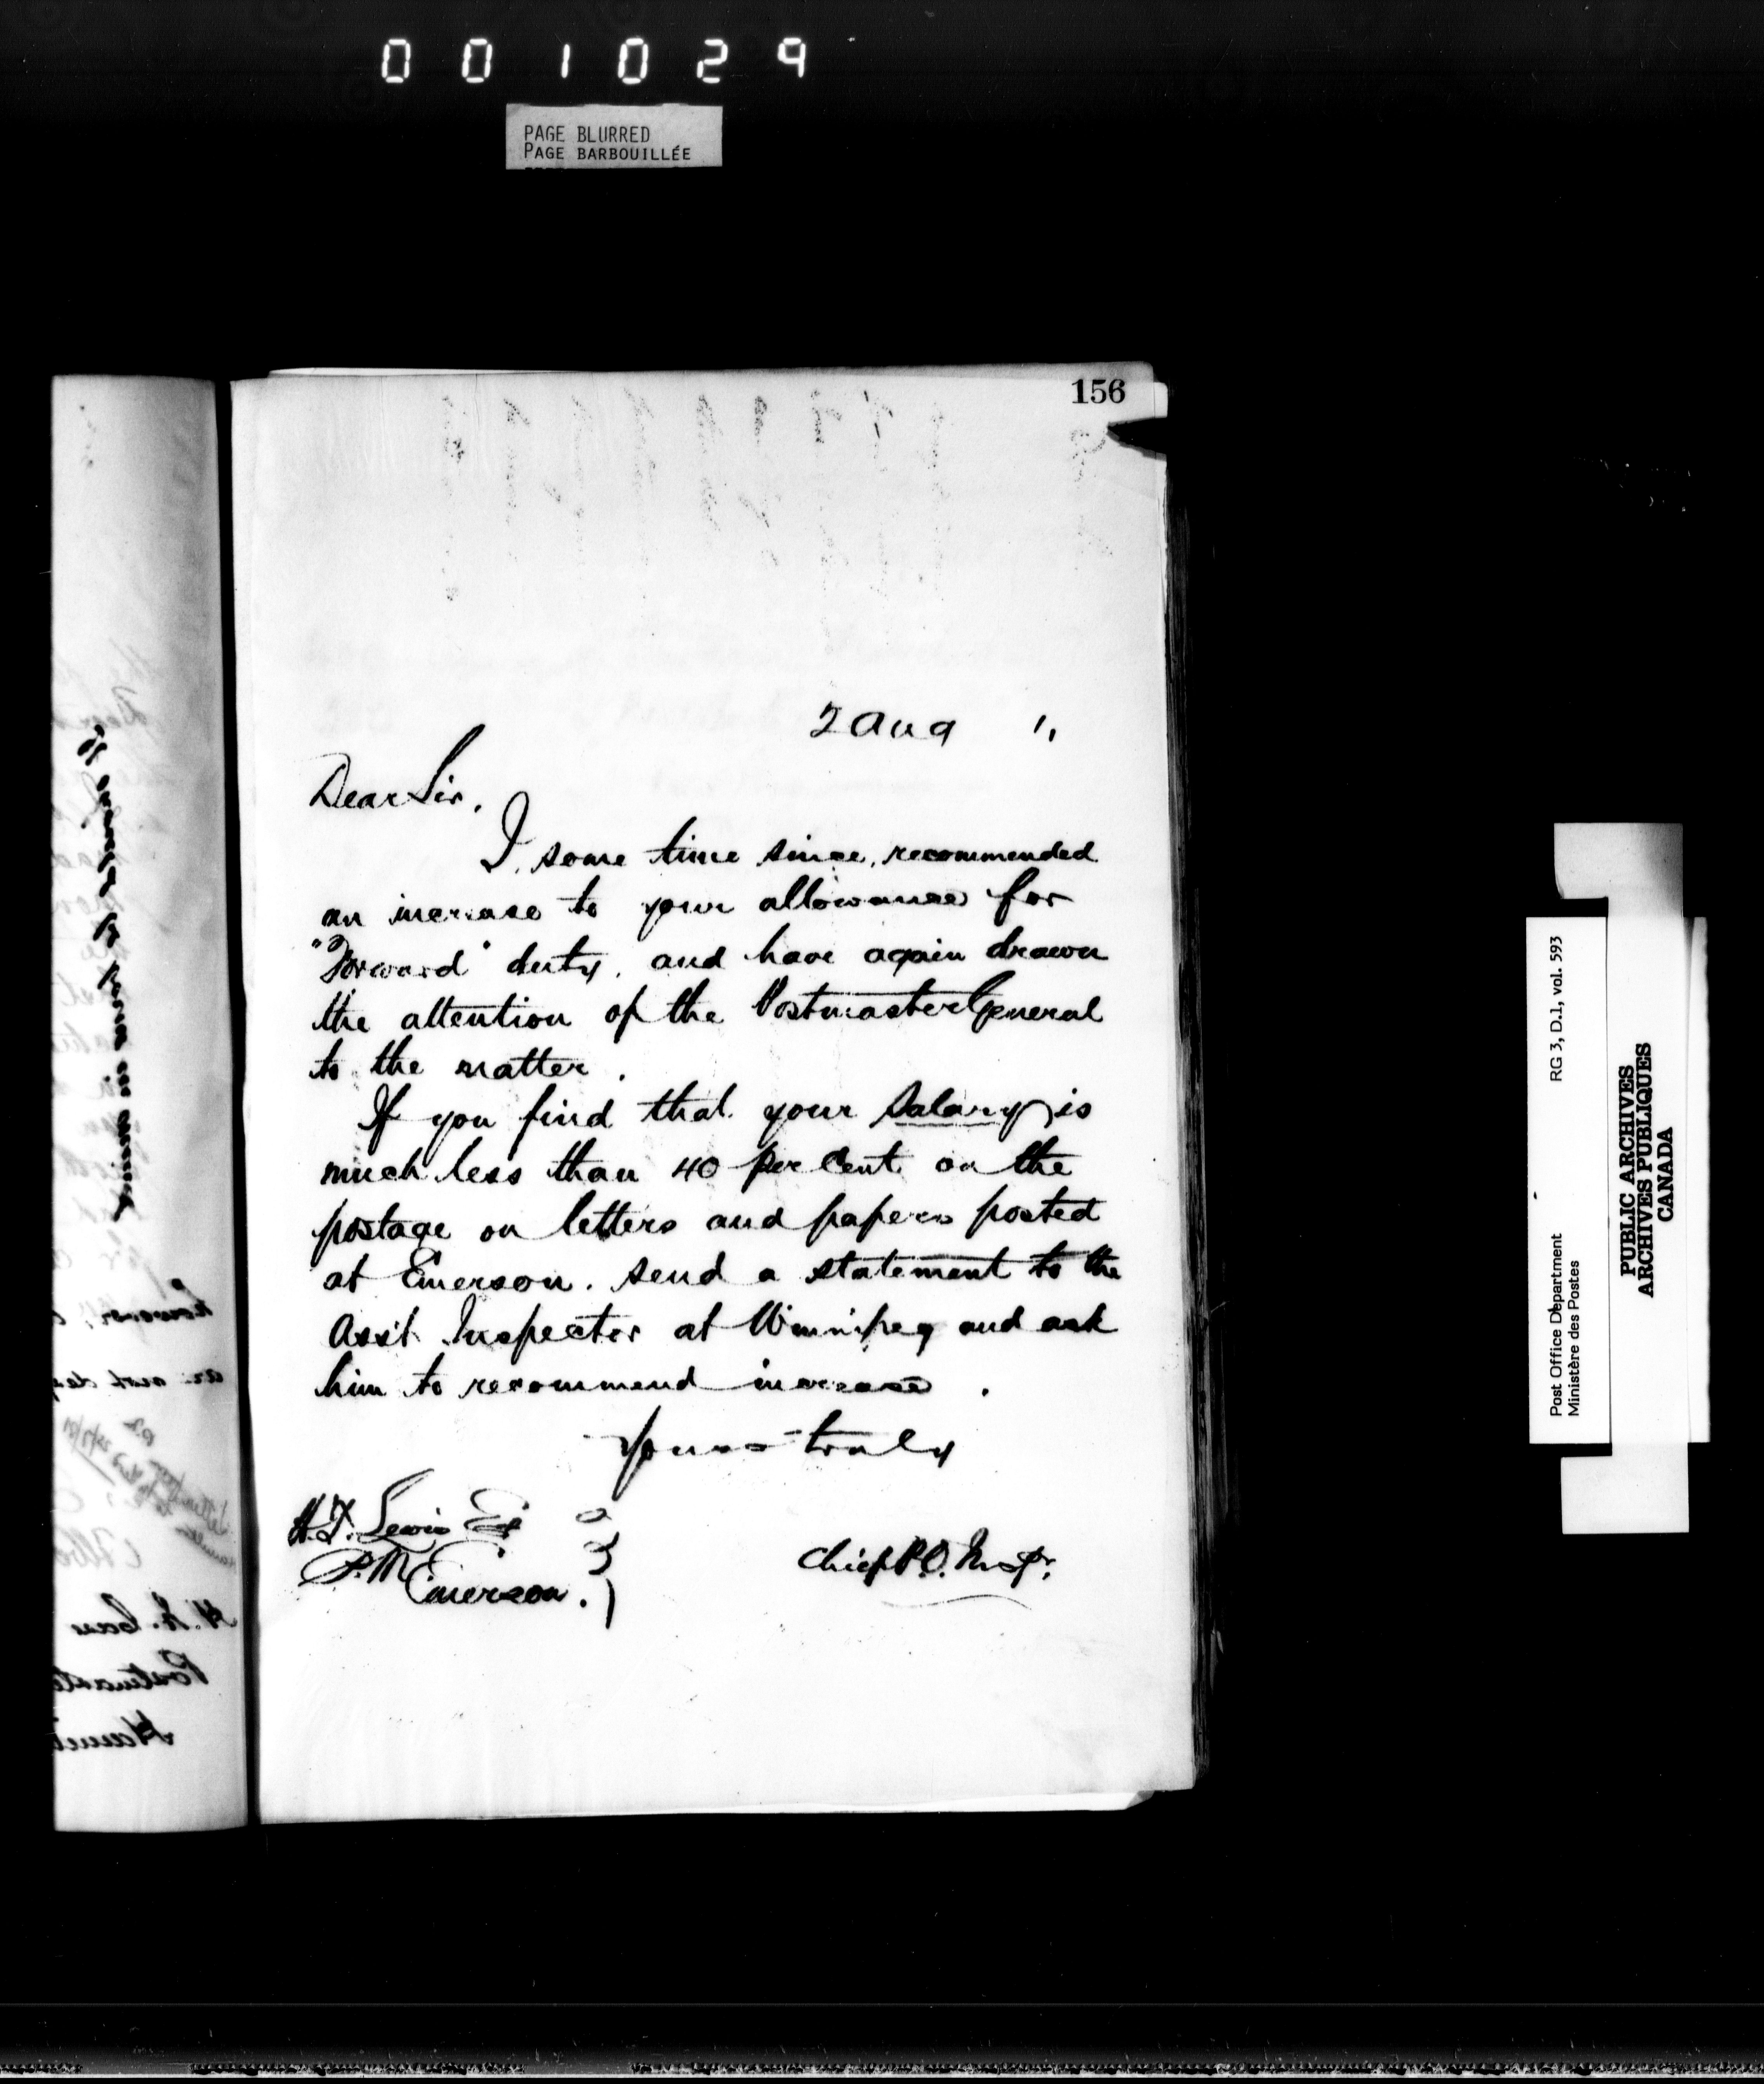 001029
PAGE BLURRED
PAGE BARBOUILLÉE
156
2 Aug "
Dear Sir.
I, some time since, recommended
an increase to your allowance for
"Forward" duty, and have again drawn
the attention of the Postmaster General
to the matter.
If you find that your salary is
much less than 40 per cent on the
postage on letters and papers posted
at Emerson. send a statement to the
Asst. Inspector at Winnipeg and ask
him to recommend increase.
Yours truly
Chief P.O. Inspr.
Lewis Esq
P.M
Emerson.
RG 3, D.1, vol. 593
Post Office Department
Ministère des Postes
PUBLIC ARCHIVES
ARCHIVES PUBLIQUES
CANADA